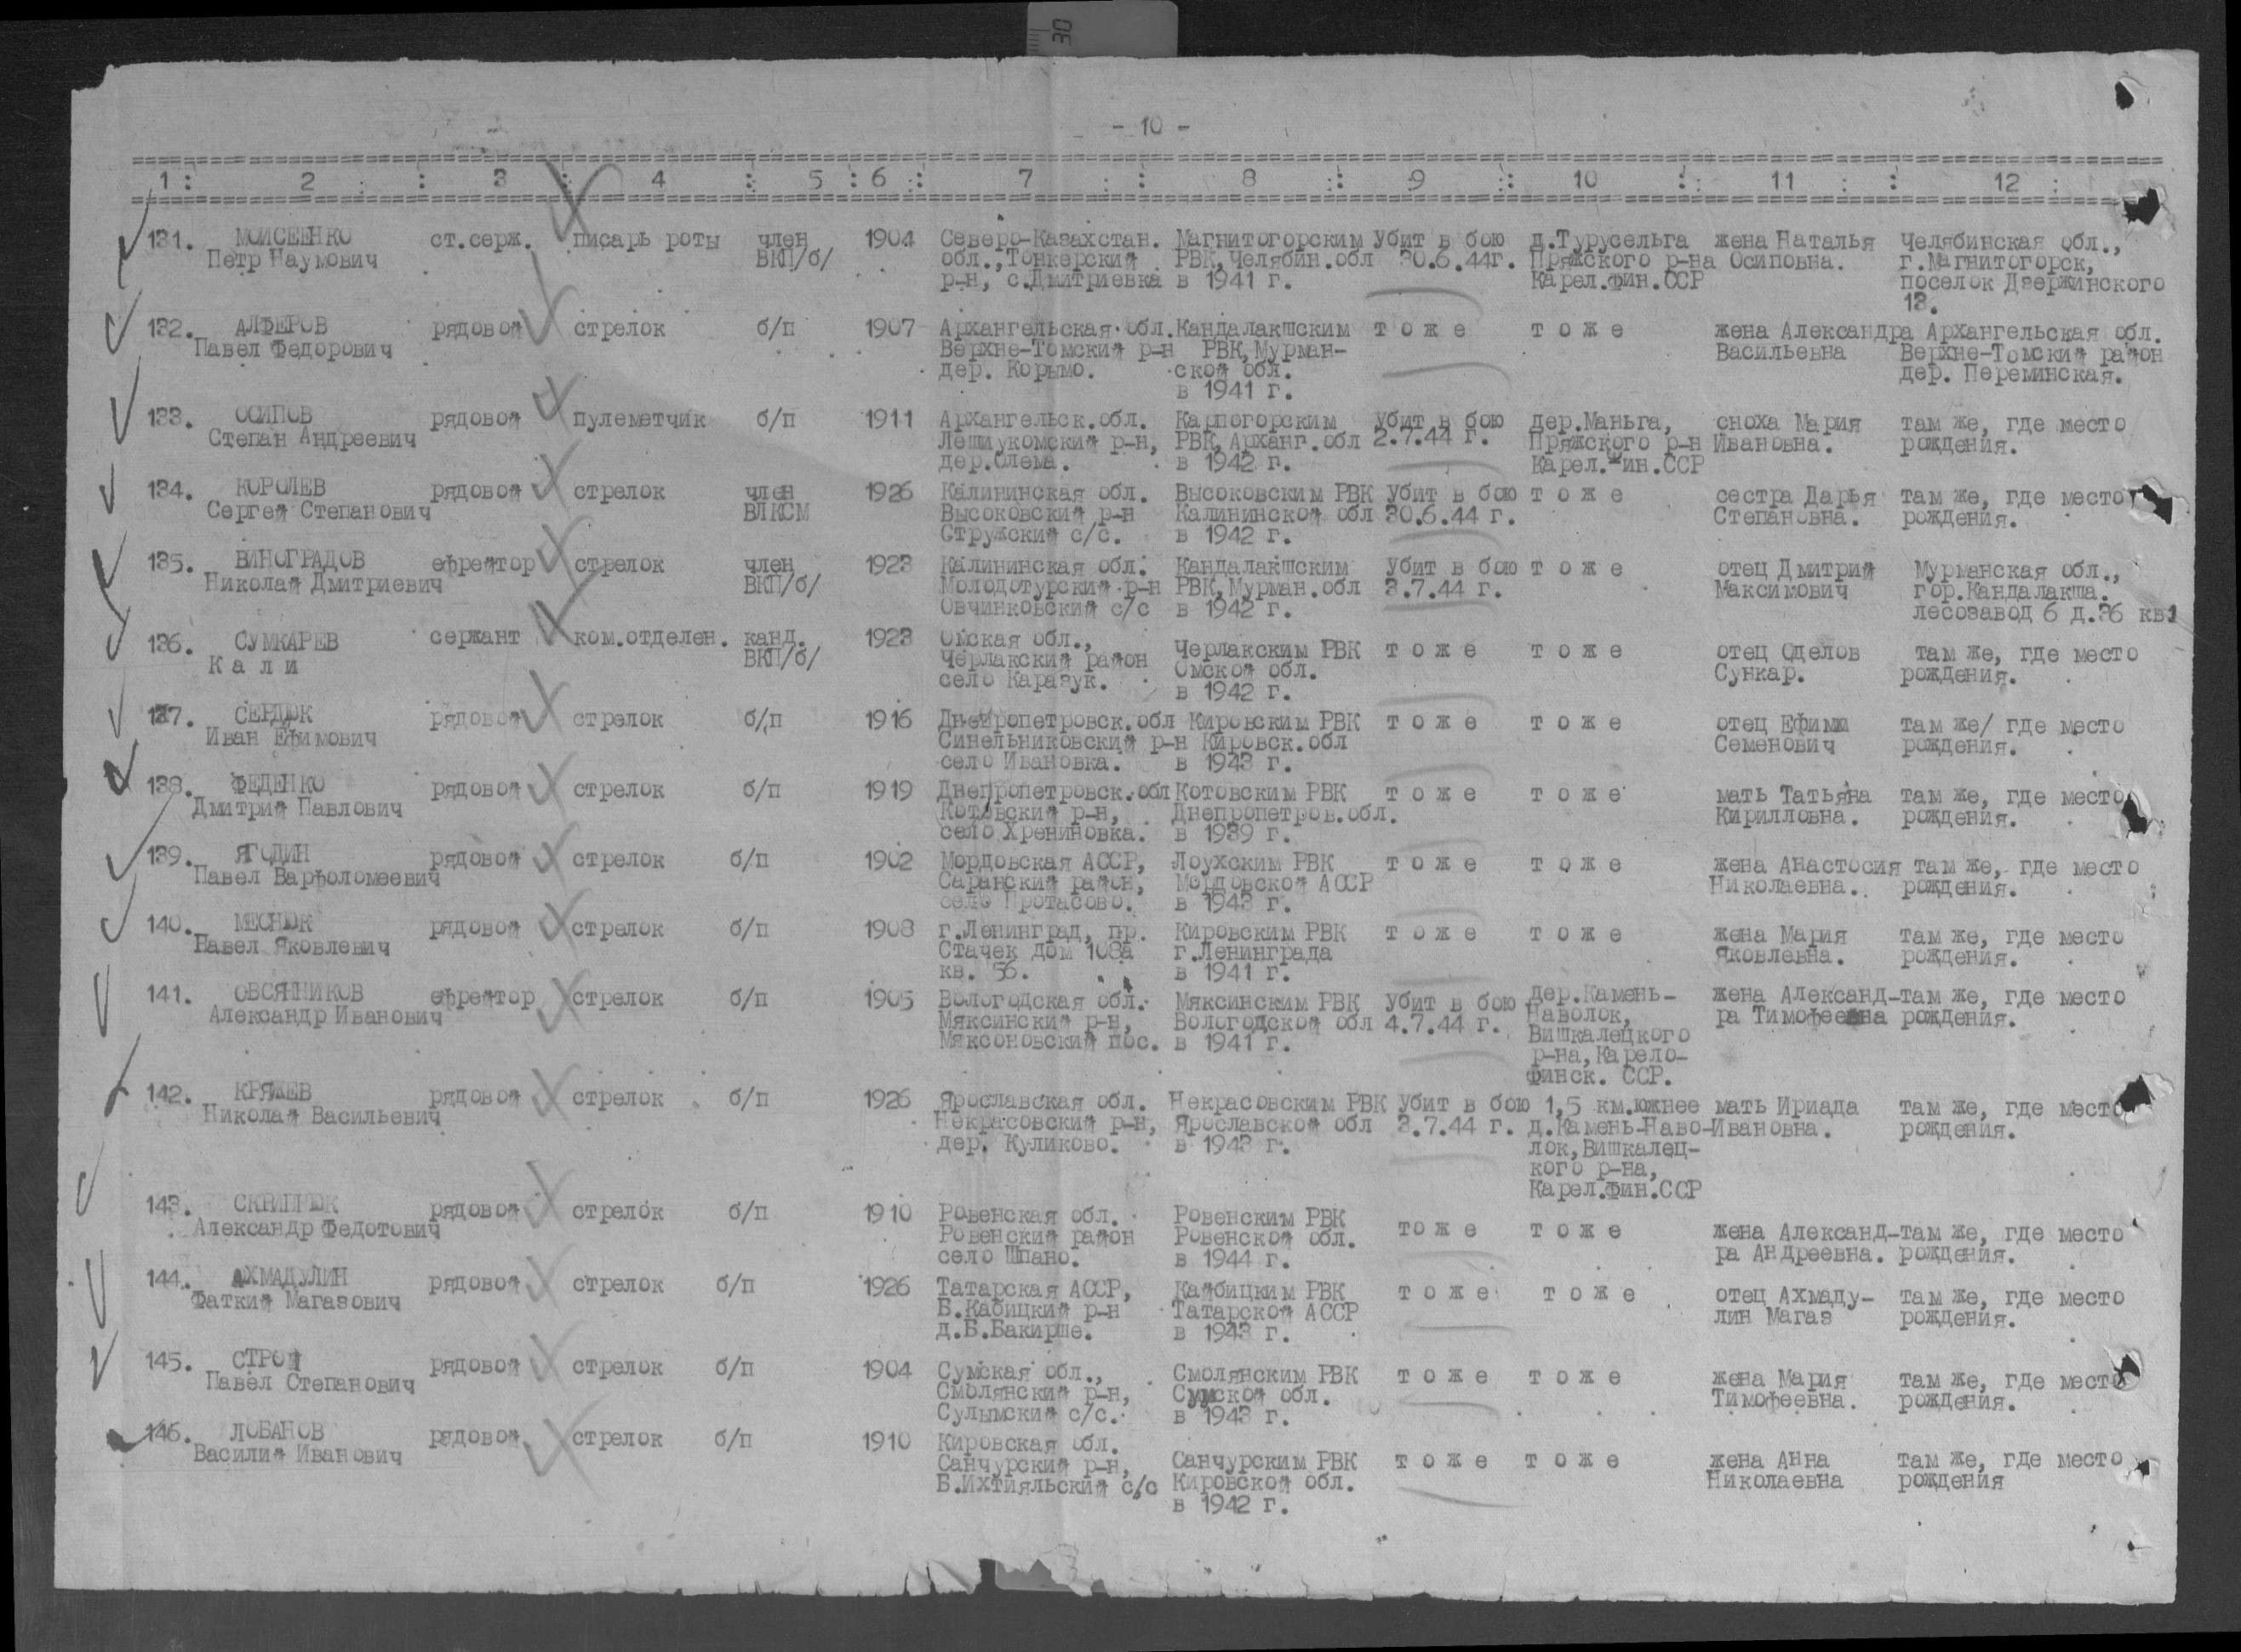 30
- 10 -
1 : 2 : 3 : 4 : 5 : 6 : 7 : 8 : 9 : 10 : 11 : 12 :
131. МОИСЕЕНКО ст.серж. писарь роты член 1904 Северо-Казахстан. Магнитогорским Убит в бою д.Турусельга жена Наталья Челябинская обл.,
Петр Наумович ВКП/б/ обл.,Тонкерский РВК,Челябин.обл 30.6.44г. Пряжского р-на Осиповна. г.Магнитогорск,
р-н, с.Дмитриевка в 1941 г. Карел.фин.ССР поселок Дзержинского
13.
132. АЛФЕРОВ рядовой стрелок б/п 1907 Архангельская обл. Кандалакшским т о ж е т о ж е жена Александра Архангельская обл.
Павел Федорович Верхне-Томский р-н РВК,Мурман- Васильевна Верхне-Томский район
дер. Корымо. ской обл. дер. Переминская.
в 1941 г.
133. ОСИПОВ рядовой пулеметчик б/п 1911 Архангельск.обл. Карпогорским Убит в бою дер.Маньга, сноха Мария там же, где место
Степан Андреевич Лешиукомский р-н, РВК,Арханг.обл 2.7.44 г. Пряжского р-н Ивановна. рождения.
дер.Олема. в 1942 г. Карел.Фин.ССР
134. КОРОЛЕВ рядовой стрелок член 1926 Калининская обл. Высоковским РВК Убит в бою т о ж е сестра Дарья там же, где место
Сергей Степанович ВЛКСМ Высоковский р-н Калининской обл 30.6.44 г. Степановна. рождения.
Стружский с/с. в 1942 г.
135. ВИНОГРАДОВ ефрейтор стрелок член 1923 Калининская обл. Кандалакшским Убит в бою т о ж е отец Дмитрий Мурманская обл.,
Николай Дмитриевич ВКП/б/ Молодотурский р-н РВК,Мурман.обл 3.7.44 г. Максимович гор.Кандалакша.
Овчинковский с/с в 1942 г. лесозавод 6 д.36 кв.1
136. СУМКАРЕВ сержант ком.отделен. канд. 1923 Омская обл., Черлакским РВК т о ж е т о ж е отец Оделов там же, где место
К а л и ВКП/б/ Черлакский район Омской обл. Сункар. рождения.
село Каразук. в 1942 г.
137. СЕРДЮК рядовой стрелок б/п 1916 Днепропетровск.обл Кировским РВК т о ж е т о ж е отец Ефим там же/ где место
Иван Ефимович Синельниковский р-н Кировск.обл Семенович рождения.
село Ивановка. в 1943 г.
138. ФЕДЕНКО рядовой стрелок б/п 1919 Днепропетровск.обл Котовским РВК т о ж е т о ж е мать Татьяна там же, где место
Дмитрий Павлович Котовский р-н, Днепропетров.обл. Кирилловна. рождения.
село Хрениновка. в 1939 г.
139. ЯГОДИН рядовой стрелок б/п 1902 Мордовская АССР, Лоухским РВК т о ж е т о ж е жена Анастосия там же, где место
Павел Варфоломеевич Саранский район, Мордовской АССР Николаевна. рождения.
село Протасово. в 1943 г.
140. МЕСНЮК рядовой стрелок б/п 1908 г.Ленинград, пр. Кировским РВК т о ж е т о ж е жена Мария там же, где место
Павел Яковлевич Стачек дом 108а г.Ленинграда Яковлевна. рождения.
кв. 56. в 1941 г.
141. ОВСЯННИКОВ ефрейтор стрелок б/п 1905 Вологодская обл. Мяксинским РВК Убит в бою дер.Камень- жена Александ-там же, где место
Александр Иванович Мяксинский р-н, Вологодской обл 4.7.44 г. Наволок, ра Тимофеевна рождения.
Мяксоновский пос. в 1941 г. Вишкалецкого
р-на,Карело-
финск. ССР.
142. КРЯЖЕВ рядовой стрелок б/п 1926 Ярославская обл. Некрасовским РВК Убит в бою 1,5 км.южнее мать Ириада там же, где место
Николай Васильевич Некрасовский р-н, Ярославской обл 3.7.44 г. д.Камень-Наво-Ивановна. рождения.
дер. Куликово. в 1943 г. лок,Вишкалец-
кого р-на,
Карел.фин.ССР
143. СКРИПНЮК рядовой стрелок б/п 1910 Ровенская обл. Ровенским РВК т о ж е т о ж е жена Александ-там же, где место
Александр Федотович Ровенский район Ровенской обл. ра Андреевна. рождения.
село Шпано. в 1944 г.
144. АХМАДУЛИН рядовой стрелок б/п 1926 Татарская АССР, Кайбицким РВК т о ж е т о ж е отец Ахмаду- там же, где место
Фаткий Магазович Б.Кабицкий р-н Татарской АССР лин Магаз рождения.
д.Б.Бакирше. в 1943 г.
145. СТРОЙ рядовой стрелок б/п 1904 Сумская обл., Смолянским РВК т о ж е т о ж е жена Мария там же, где место
Павел Степанович Смолянский р-н, Сумской обл. Тимофеевна. рождения.
Сулымский с/с. в 1943 г.
146. ЛОБАНОВ рядовой стрелок б/п 1910 Кировская обл. Санчурским РВК т о ж е т о ж е жена Анна там же, где место
Василий Иванович Санчурский р-н, Кировской обл. Николаевна рождения
Б.Ихтияльский с/с в 1942 г.